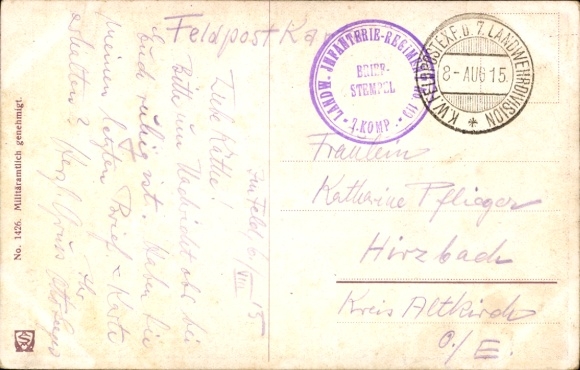 Feldpost Karte
LANDW.-INFANTERIE-REGIMENT No 119
BRIEF-
STEMPEL
7. KOMP.
K.W. FELDPOSTEXP. D. 7. LANDWEHRDIVISION
8-AUG 15.
Im Feld 6/VIII 15
Liebe Käthe!
Bitte um Nachricht ob bei
Euch ruhig ist. Haben Sie
meinen letzten Brief & Karte
erhalten? Herzl. Gruss
Ihr
Fräulein
Katharine Pflieger
Hirzbach
Kreis Altkirch
O./E.
No. 1426. Militäramtlich genehmigt.